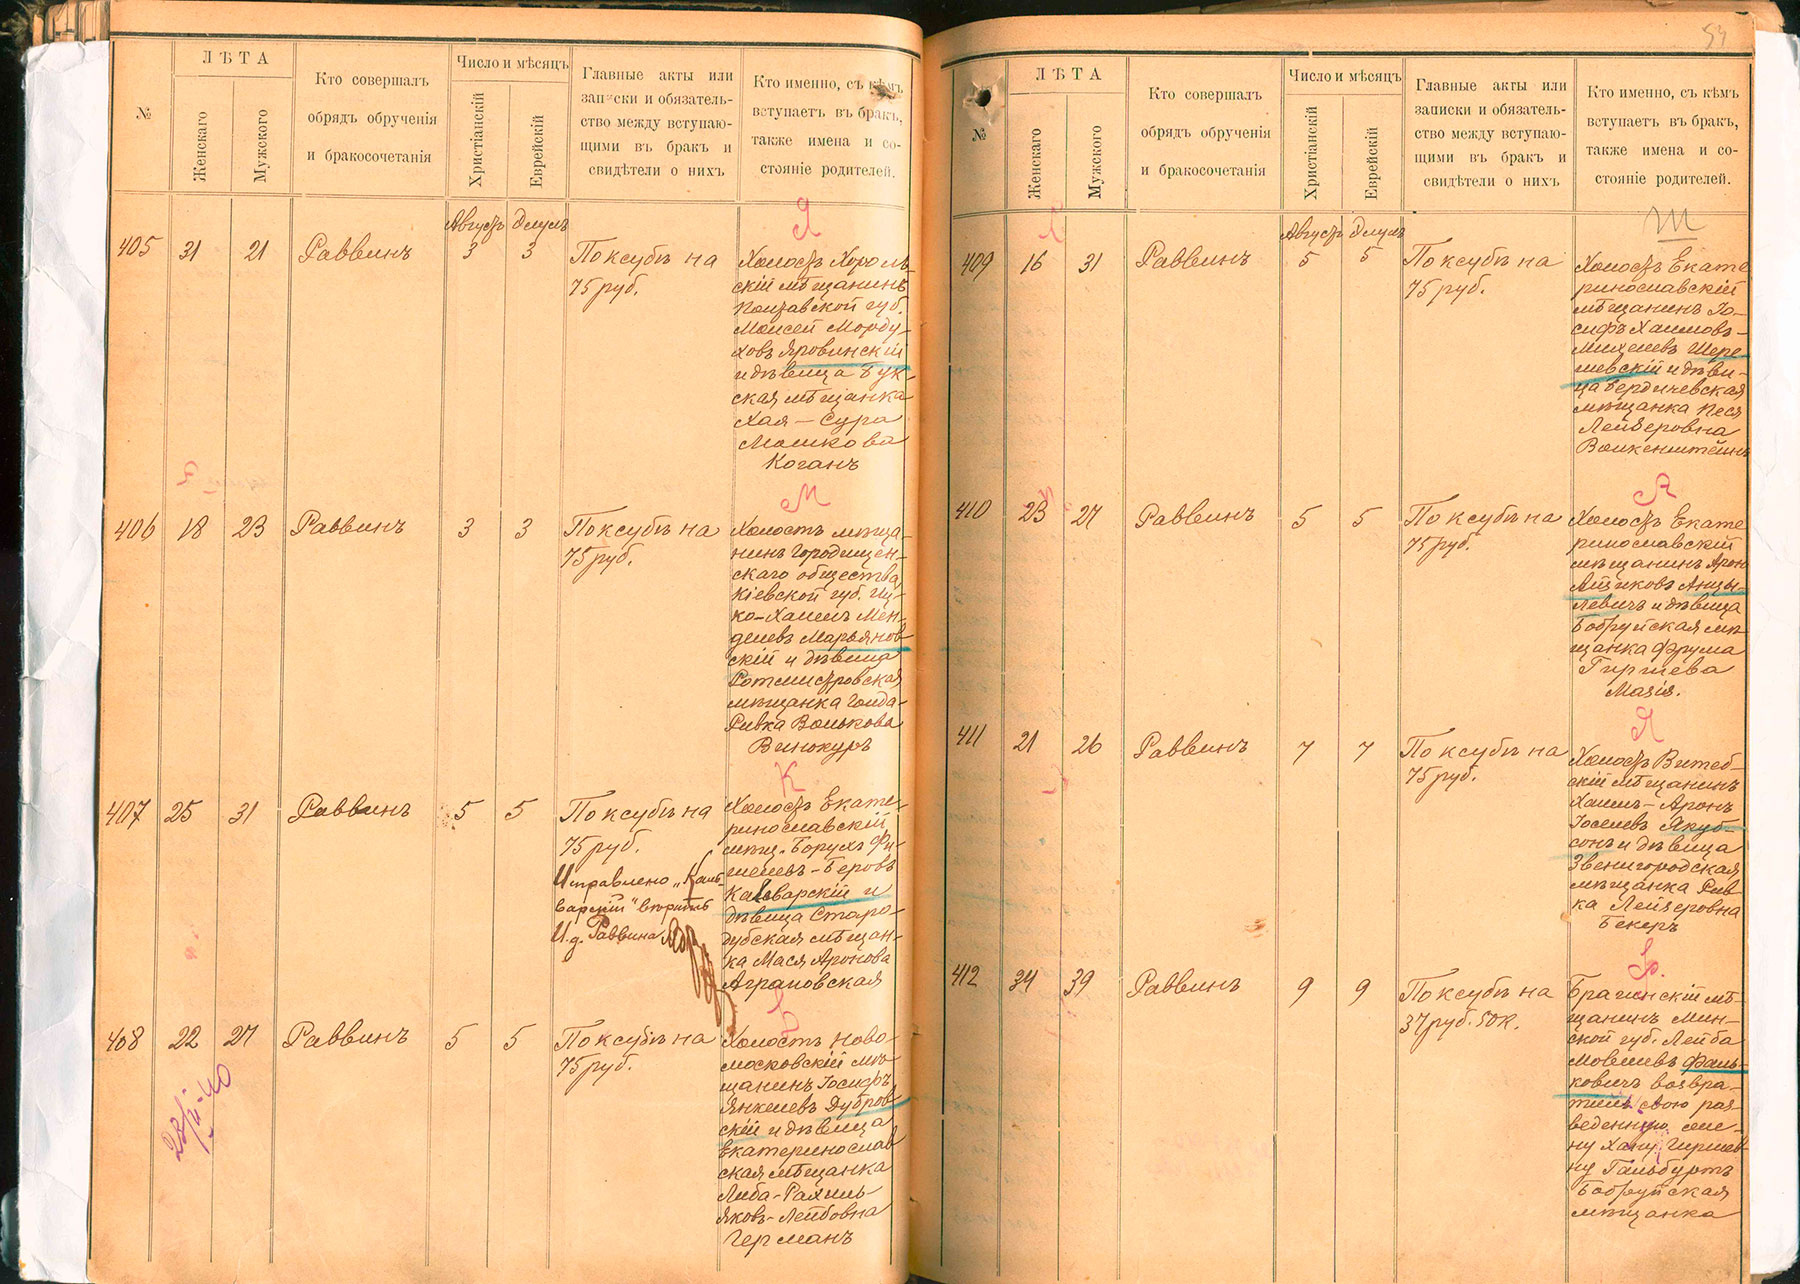 №
ЛѢТА
Женскаго
Мужского
Кто совершалъ
обрядъ обрученія
и бракосочетанія
Число и мѣсяцъ
Христіанскій
Еврейскій
Главные акты или
записки и обязатель-
ство между вступаю-
щими въ бракъ и
свидѣтели о нихъ
Кто именно, съ кѣмъ
вступаетъ въ бракъ,
также имена и со-
стояніе родителей.
Августъ Элулъ
Я
405 31 21 Раввинъ 3 3 По ксубѣ на
75 руб.
Холостъ Хороль-
скій мѣщанинъ
Полтавской губ.
Моисей Морду-
ховъ Яровинскій
и дѣвица Бук-
ская мѣщанка
Хая-Сура
Мошкова
Коганъ
М
406 18 23 Раввинъ 3 3 По ксубѣ на
75 руб.
Холостъ мѣща-
нинъ Городищен-
скаго общества
Кіевской губ. Иц-
ко-Хаимъ Мен-
делевъ Марьянов-
скій и дѣвица
Ротмистровская
мѣщанка Голда-
Ривка Волькова
Винокуръ
К
407 25 31 Раввинъ 5 5 По ксубѣ на
75 руб.
Исправлено „Каль-
варскій" вѣрить
И.д. Раввина
Холостъ Екате-
ринославскій
мѣщ. Борухъ Фи-
шелевъ-Беровъ
Кальварскій и
дѣвица Старо-
дубская мѣщан-
ка Мася Аронова
Аграновская
408 22 27 Раввинъ 5 5 По ксубѣ на
75 руб.
Холостъ Ново-
московскій мѣ-
щанинъ Іосифъ
Янкелевъ Дубров-
скій и дѣвица
Екатеринослав
ская мѣщанка
Либа-Рахиль
Яковъ-Лейбовна
Германъ
54
№
ЛѢТА
Женскаго
Мужского
Кто совершалъ
обрядъ обрученія
и бракосочетанія
Число и мѣсяцъ
Христіанскій
Еврейскій
Главные акты или
записки и обязатель-
ство между вступаю-
щими въ бракъ и
свидѣтели о нихъ
Кто именно, съ кѣмъ
вступаетъ въ бракъ,
также имена и со-
стояніе родителей.
Августъ Элулъ
Ш
409 16 31 Раввинъ 5 5 По ксубѣ на
75 руб.
Холостъ Екате
ринославскій
мѣщанинъ Іо-
сифъ Хаимовъ-
Михелевъ Шере
шевскій и дѣви-
ца Бердичевская
мѣщанка Песя
Лейзеровна
Волкенштейнъ
А
410 23 27 Раввинъ 5 5 По ксубѣ на
75 руб.
Холостъ Екате
ринославскій
мѣщанинъ Аронъ
Айзиковъ Анцы-
левичъ и дѣвица
Бобруйская мѣ-
щанка Фрума
Гиршева
Мазія.
Я
411 21 26 Раввинъ 7 7 По ксубѣ на
75 руб.
Холостъ Витеб-
скій мѣщанинъ
Хаимъ-Аронъ
Іоселевъ Якуб-
сонъ и дѣвица
Звенигородская
мѣщанка Рив-
ка Лейзеровна
Бекеръ
Ф.
412 34 39 Раввинъ 9 9 По ксубѣ на
37 руб. 50 к.
Брагинскій мѣ-
щанинъ Мин-
ской губ. Лейба
Мовшевъ Фаль-
ковичъ возвра-
тилъ свою раз-
веденную же-
ну Хану Гиршев-
ну Гальбуртъ
Бобруйская
мѣщанка